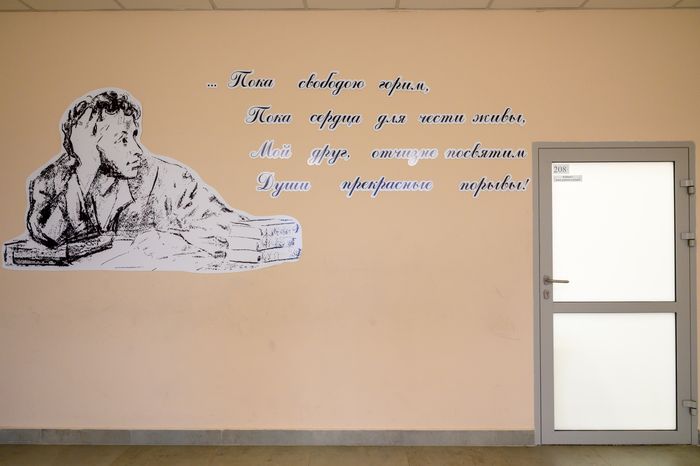 ... Пока свободою горим,
Пока сердца для чести живы,
Мой друг, отчизне посвятим
Души прекрасные порывы!
208